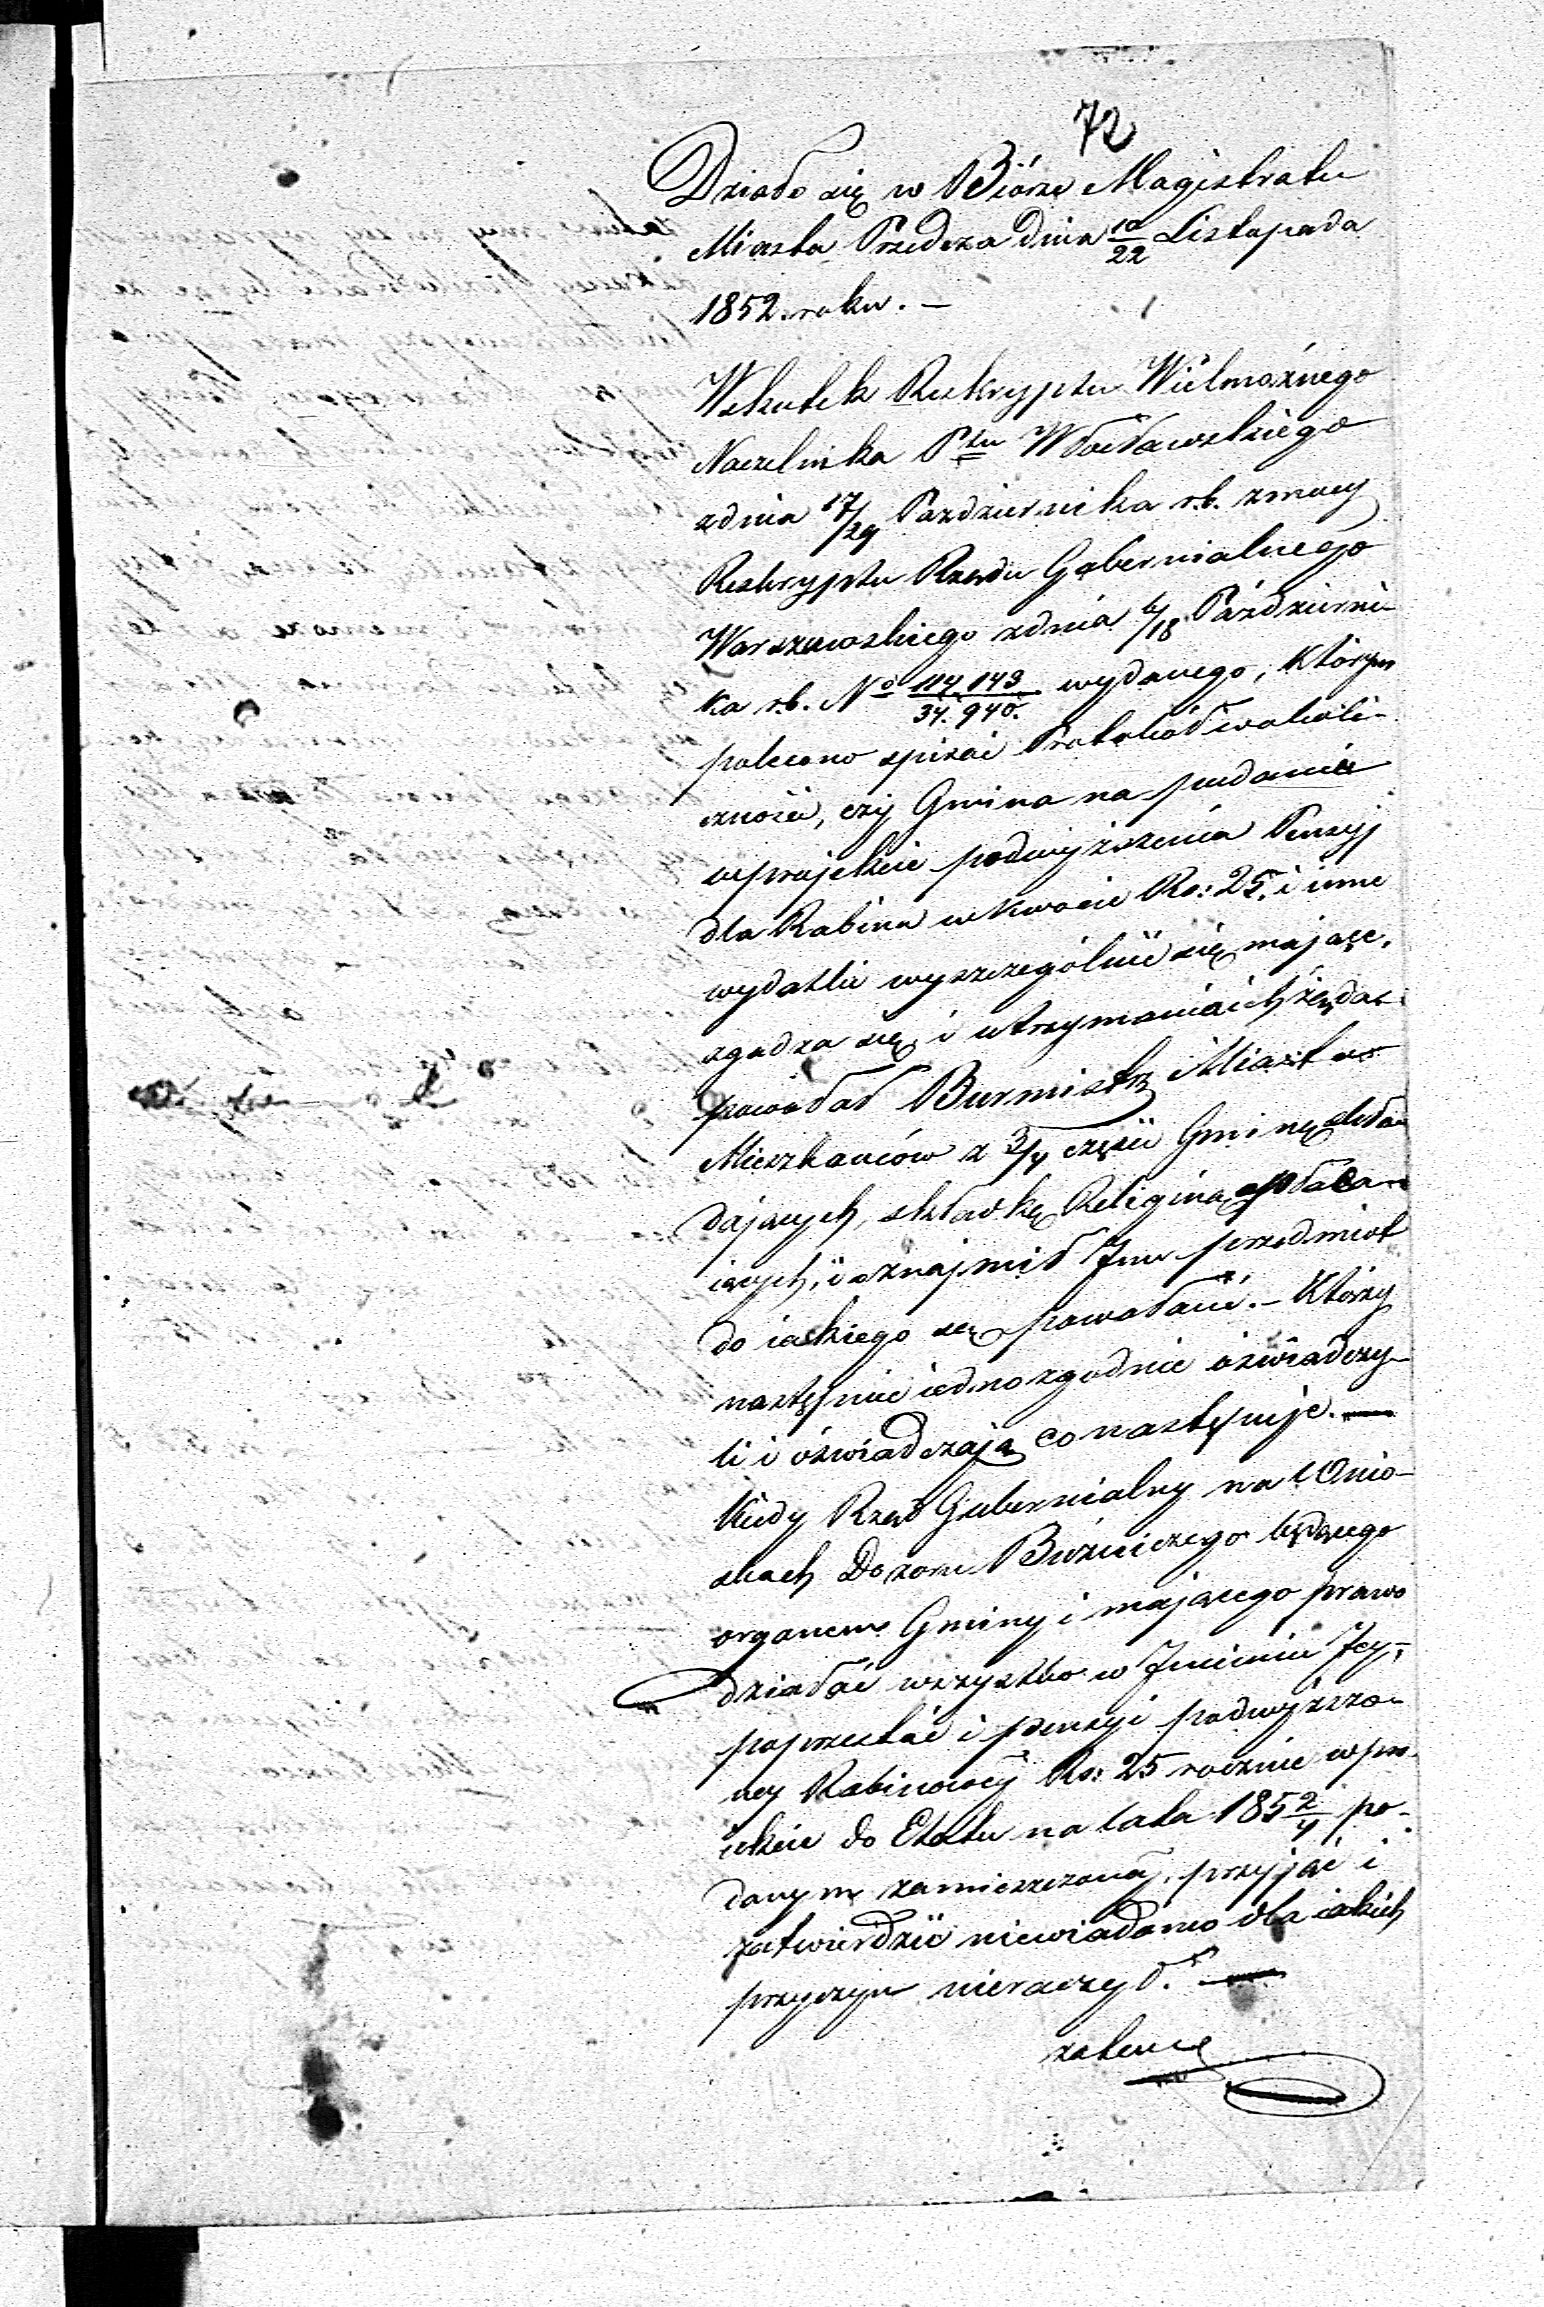 72
Działo się w Biórze Magistratu
Miasta Przedcza dnia 10/22 Listopada
1852 roku. —
Wskutek Reskryptu Wielmożnego
Naczelnika Ptu Włocławskiego
zdnia 17/29 Pazdziernika r.b. zmocy
Reskryptu Rządu Gubernialnego
Warszawskiego zdnia 6/18 Październi-
ka r.b. No 114.143/34.940. wydanego, którym
polecono spisać Protokół woko­li-
czności, czy Gmina na podanie
wprojekcie podwyższenia Pensyj
dla Rabina w kwocie Rs: 25. i inne
wydatki wyszczególnić się mające,
zgadza się i utrzymania ich żąda:
powołał Burmistrz Miasta
Mieszkańców z 3/4 części Gminę skła-
dających, składkę Religiną opłaca-
iących, i oznajmił Im przedmiot
do iakiego są powołani. — Którzy
następnie iednozgodnie oświadczy-
li i oświadczają co następuje. —
Kiedy Rząd Gubernialny na Wnio-
skach Dozoru Bużniczego będącego
organem Gminy i mającego prawo
działać wszystko w Imieniu Jey,
poprzestać i pensyi podwyższo-
ney Rabinowey Rs: 25 rocznie wpro-
iekcie do Etatu na lata 1852/4 po-
danym zamieszczoną, przyjąć i
zatwierdzić niewiadomo dla iakich
przyczyn nieraczył. —